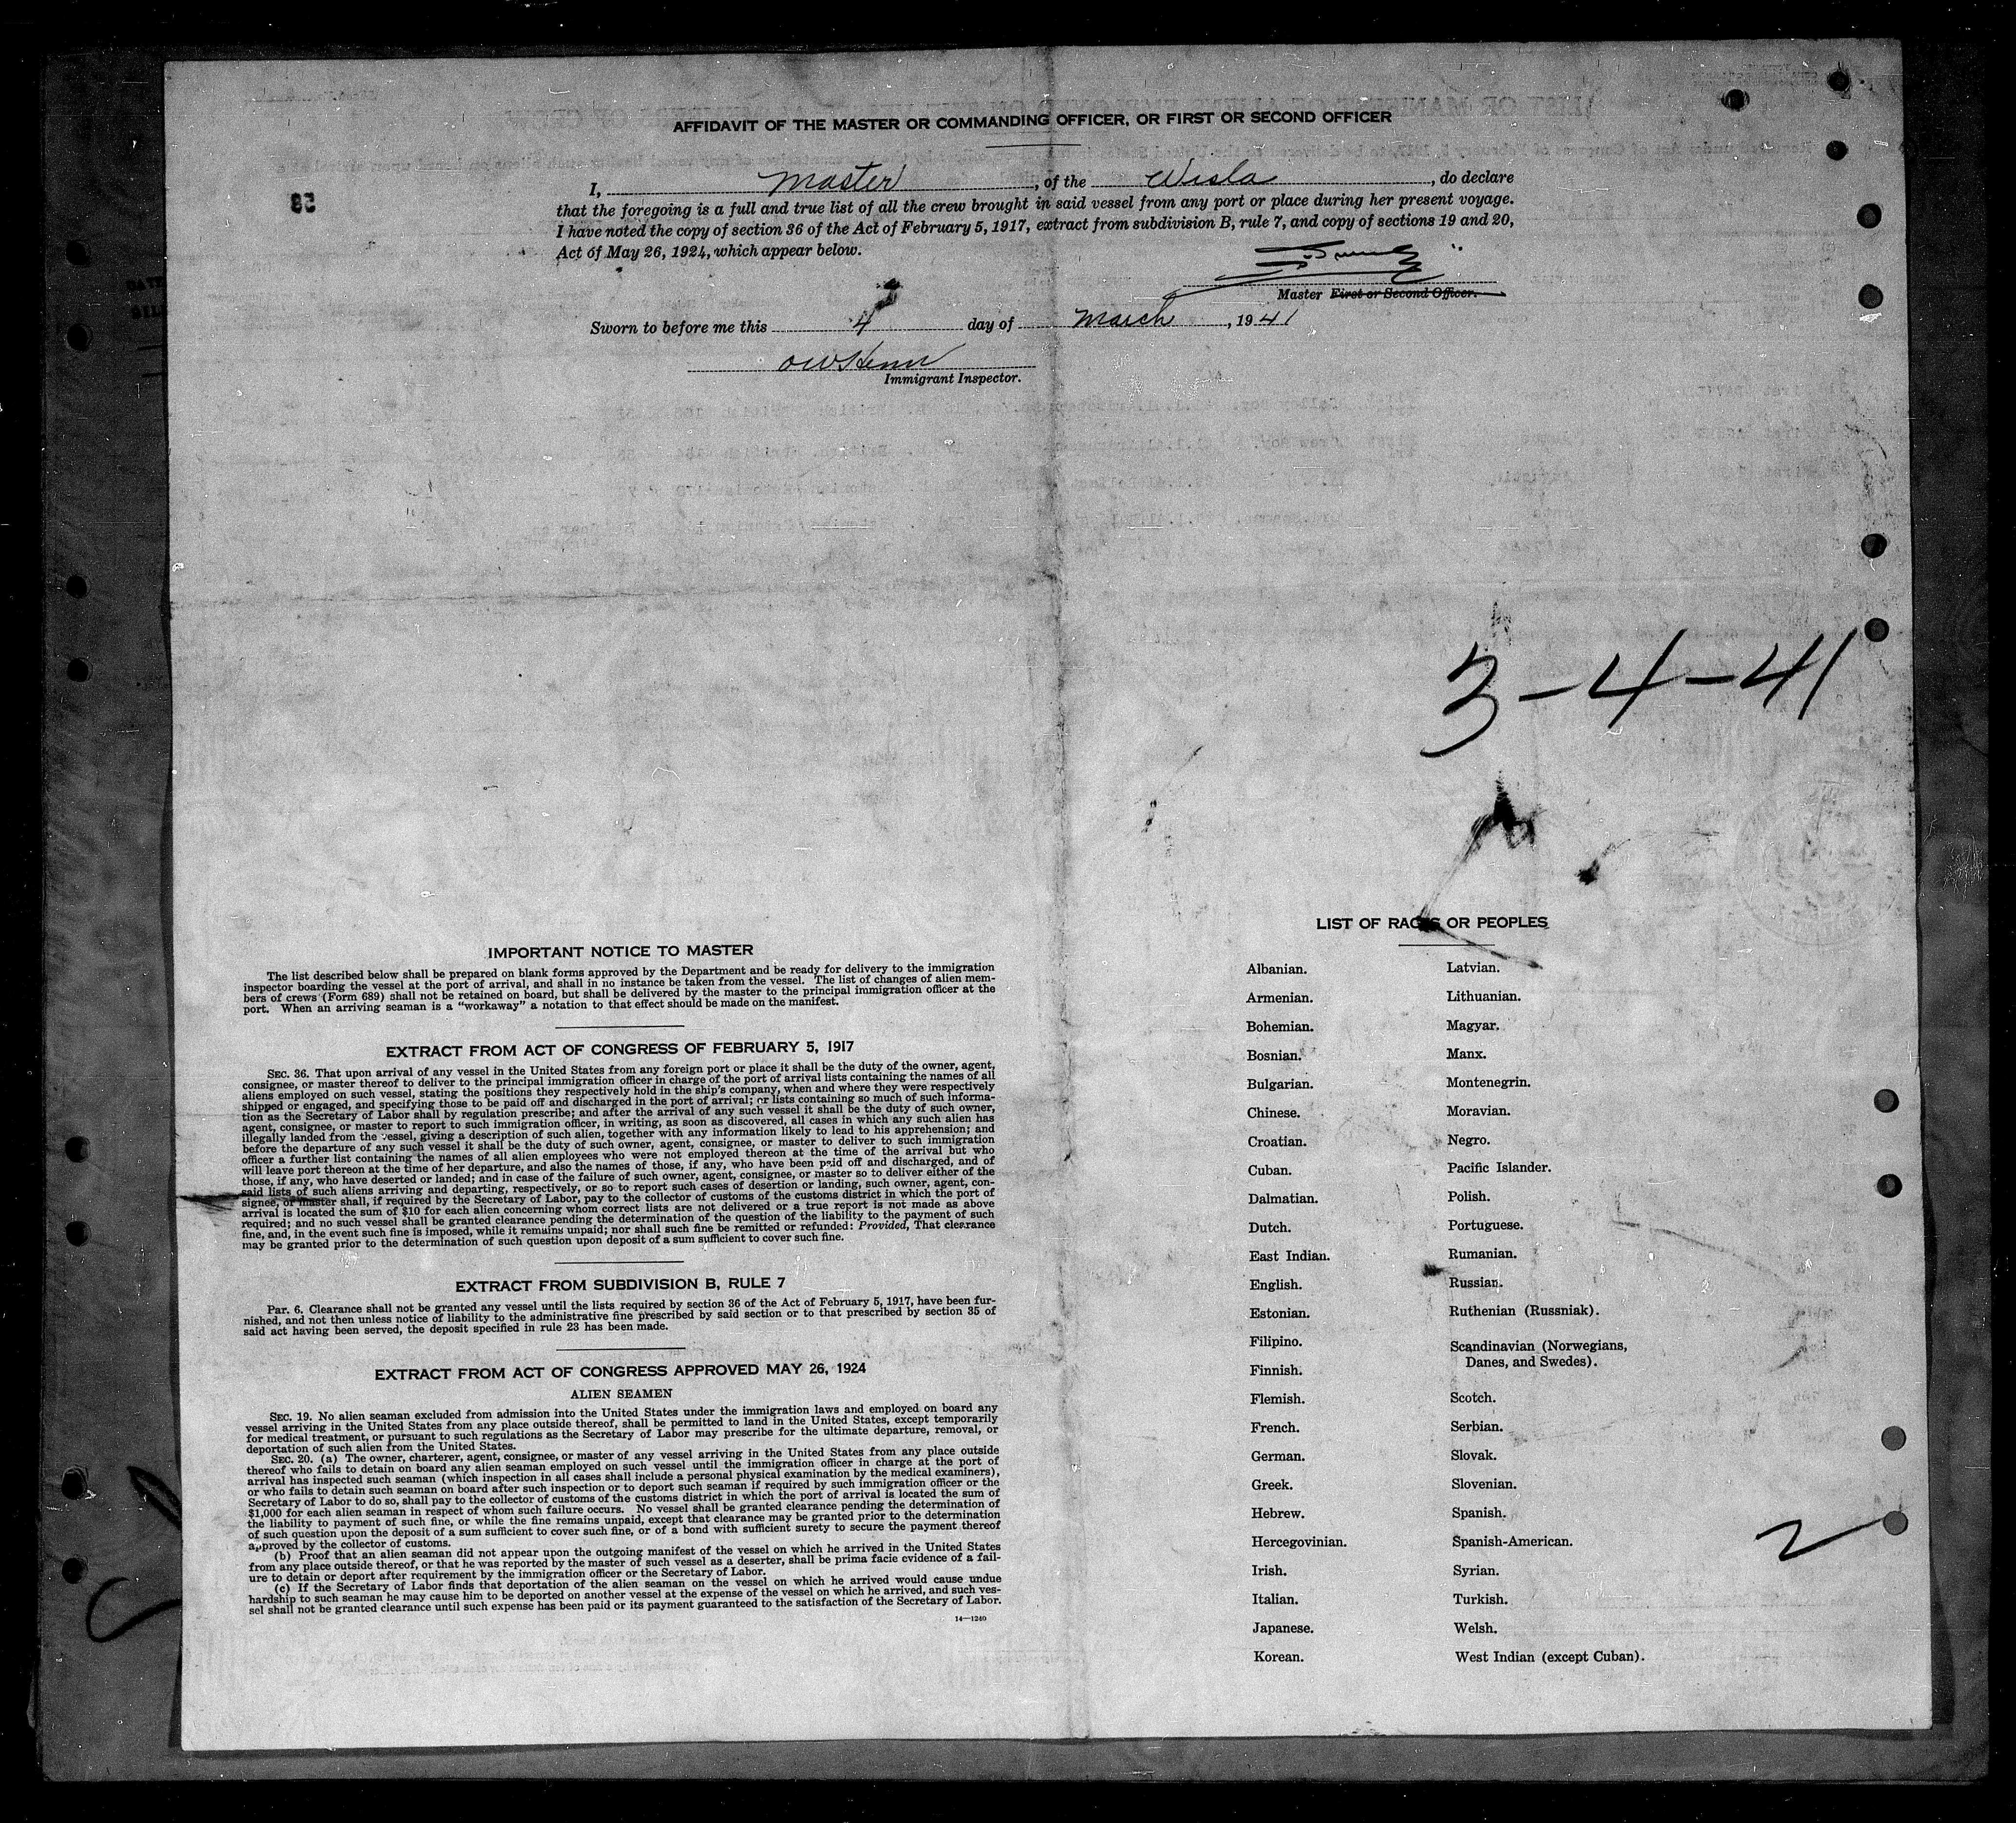 AFFIDAVIT OF THE MASTER OR COMMANDING OFFICER, OR FIRST OR SECOND OFFICER
I, Master, of the Wisla, do declare
that the foregoing is a full and true list of all the crew brought in said vessel from any port or place during her present voyage.
I have noted the copy of section 36 of the Act of February 5, 1917, extract from subdivision B, rule 7, and copy of sections 19 and 20,
Act of May 26, 1924, which appear below.
Master First or Second Officer.
Sworn to before me this 4 day of March, 1941
Immigrant Inspector.
3-4-41
IMPORTANT NOTICE TO MASTER
The list described below shall be prepared on blank forms approved by the Department and be ready for delivery to the immigration
inspector boarding the vessel at the port of arrival, and shall in no instance be taken from the vessel. The list of changes of alien mem-
bers of crews (Form 689) shall not be retained on board, but shall be delivered by the master to the principal immigration officer at the
port. When an arriving seaman is a "workaway" a notation to that effect should be made on the manifest.
EXTRACT FROM ACT OF CONGRESS OF FEBRUARY 5, 1917
SEC. 36. That upon arrival of any vessel in the United States from any foreign port or place it shall be the duty of the owner, agent,
consignee, or master thereof to deliver to the principal immigration officer in charge of the port of arrival lists containing the names of all
aliens employed on such vessel, stating the positions they respectively hold in the ship's company, when and where they were respectively
shipped or engaged, and specifying those to be paid off and discharged in the port of arrival; or lists containing so much of such informa-
tion as the Secretary of Labor shall by regulation prescribe; and after the arrival of any such vessel it shall be the duty of such owner,
agent, consignee, or master to report to such immigration officer, in writing, as soon as discovered, all cases in which any such alien has
illegally landed from the vessel, giving a description of such alien, together with any information likely to lead to his apprehension; and
before the departure of any such vessel it shall be the duty of such owner, agent, consignee, or master to deliver to such immigration
officer a further list containing the names of all alien employees who were not employed thereon at the time of the arrival but who
will leave port thereon at the time of her departure, and also the names of those, if any, who have been paid off and discharged, and of
those, if any, who have deserted or landed; and in case of the failure of such owner, agent, consignee, or master so to deliver either of the
said lists of such aliens arriving and departing, respectively, or so to report such cases of desertion or landing, such owner, agent, con-
signee, or master shall, if required by the Secretary of Labor, pay to the collector of customs of the customs district in which the port of
arrival is located the sum of $10 for each alien concerning whom correct lists are not delivered or a true report is not made as above
required; and no such vessel shall be granted clearance pending the determination of the question of the liability to the payment of such
fine, and, in the event such fine is imposed, while it remains unpaid; nor shall such fine be remitted or refunded: Provided, That clearance
may be granted prior to the determination of such question upon deposit of a sum sufficient to cover such fine.
EXTRACT FROM SUBDIVISION B, RULE 7
Par. 6. Clearance shall not be granted any vessel until the lists required by section 36 of the Act of February 5, 1917, have been fur-
nished, and not then unless notice of liability to the administrative fine prescribed by said section or to that prescribed by section 35 of
said act having been served, the deposit specified in rule 23 has been made.
EXTRACT FROM ACT OF CONGRESS APPROVED MAY 26, 1924
ALIEN SEAMEN
SEC. 19. No alien seaman excluded from admission into the United States under the immigration laws and employed on board any
vessel arriving in the United States from any place outside thereof, shall be permitted to land in the United States, except temporarily
for medical treatment, or pursuant to such regulations as the Secretary of Labor may prescribe for the ultimate departure, removal, or
deportation of such alien from the United States.
SEC. 20. (a) The owner, charterer, agent, consignee, or master of any vessel arriving in the United States from any place outside
thereof who fails to detain on board any alien seaman employed on such vessel until the immigration officer in charge at the port of
arrival has inspected such seaman (which inspection in all cases shall include a personal physical examination by the medical examiners),
or who fails to detain such seaman on board after such inspection or to deport such seaman if required by such immigration officer or the
Secretary of Labor to do so, shall pay to the collector of customs of the customs district in which the port of arrival is located the sum of
$1,000 for each alien seaman in respect of whom such failure occurs. No vessel shall be granted clearance pending the determination of
the liability to payment of such fine, or while the fine remains unpaid, except that clearance may be granted prior to the determination
of such question upon the deposit of a sum sufficient to cover such fine, or of a bond with sufficient surety to secure the payment thereof
approved by the collector of customs.
(b) Proof that an alien seaman did not appear upon the outgoing manifest of the vessel on which he arrived in the United States
from any place outside thereof, or that he was reported by the master of such vessel as a deserter, shall be prima facie evidence of a fail-
ure to detain or deport after requirement by the immigration officer or the Secretary of Labor.
(c) If the Secretary of Labor finds that deportation of the alien seaman on the vessel on which he arrived would cause undue
hardship to such seaman he may cause him to be deported on another vessel at the expense of the vessel on which he arrived, and such ves-
sel shall not be granted clearance until such expense has been paid or its payment guaranteed to the satisfaction of the Secretary of Labor.
14—1240
LIST OF RACES OR PEOPLES
Albanian.
Armenian.
Bohemian.
Bosnian.
Bulgarian.
Chinese.
Croatian.
Cuban.
Dalmatian.
Dutch.
East Indian.
English.
Estonian.
Filipino.
Finnish.
Flemish.
French.
German.
Greek.
Hebrew.
Hercegovinian.
Irish.
Italian.
Japanese.
Korean.
Latvian.
Lithuanian.
Magyar.
Manx.
Montenegrin.
Moravian.
Negro.
Pacific Islander.
Polish.
Portuguese.
Rumanian.
Russian.
Ruthenian (Russniak).
Scandinavian (Norwegians,
Danes, and Swedes).
Scotch.
Serbian.
Slovak.
Slovenian.
Spanish.
Spanish-American.
Syrian.
Turkish.
Welsh.
West Indian (except Cuban).
2